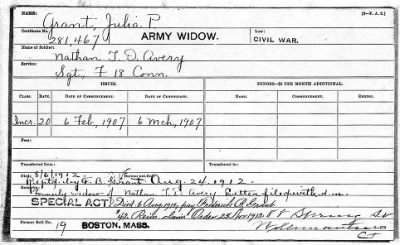 NAME: (3-P. A. 2.)
Grant, Julia P.
Certificate No.
281,467 ARMY WIDOW. CIVIL WAR.
Name of Soldier:
Nathan T. D. Avery
Service:
Sgt. F 18 Conn.
ISSUES. MINORS—$2 PER MONTH ADDITIONAL.
CLASS. RATE. DATE OF COMMENCEMENT. DATE OF CERTIFICATE. NAMES. DATE OF COMMENCEMENT. ENDING.
Incr. 20 6 Feb, 1907 6 Mch, 1907
Transferred from— Transferred to—
Died: 8/6/1912
Reptd. by G. B. Grant Aug. 24. 1912.
Formerly widow of Nathan T. D. Avery Letter filed with
SPECIAL ACT Died 6 Aug 1912, pay Frederick B. Grant
Reim. claim Order 25 Nov 1912. 88 Spring St
Former Roll No.
19 BOSTON, MASS. Willimantic
Ct